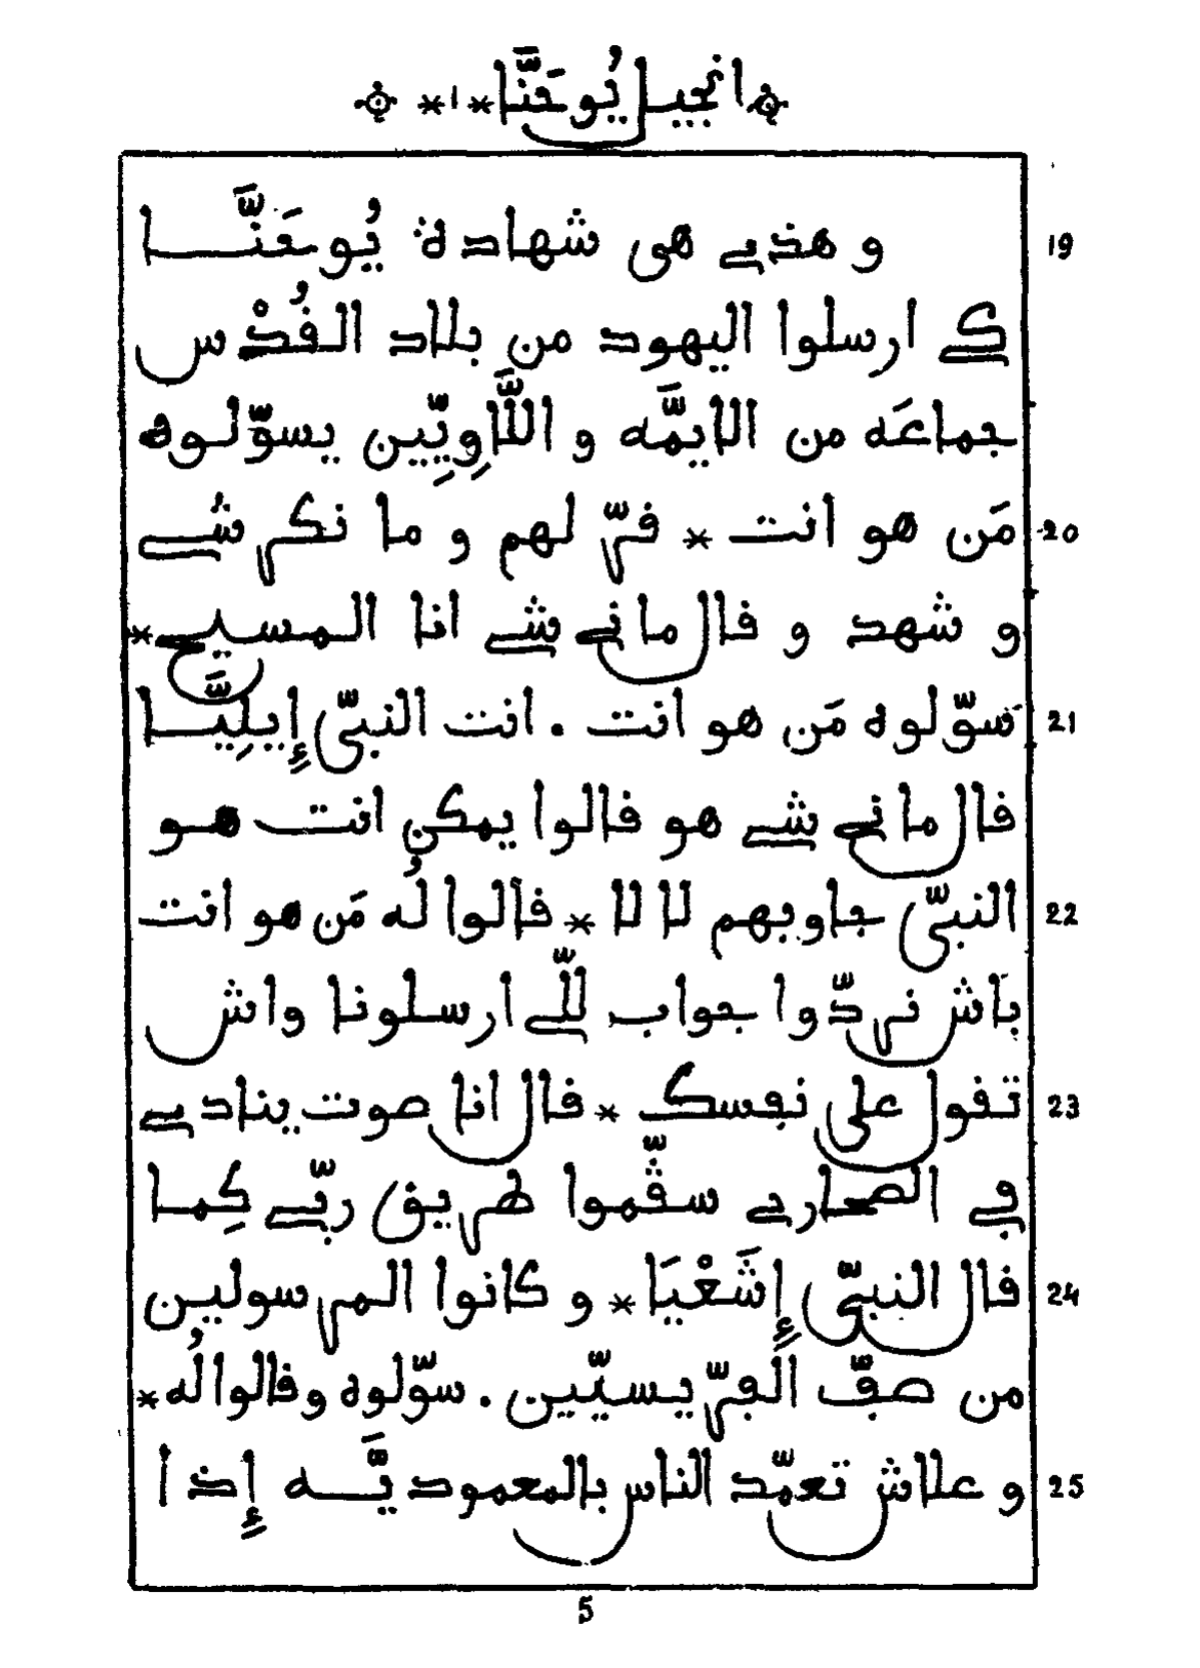 انجيل يُوحَنَّا * ١ *
19 و هذي هي شهادة يُوحَنَّا
كي ارسلوا اليهود من بلاد القُدْس
جماعَه من الايمَّه و اللَّاوِيِّين يسوّلوه
20 مَن هو انت * قرّ لهم و ما نكر شي
و شهد و قال ماني شي انا المسيح *
21 سوّلوه مَن هو انت . انت النبيّ إِيلِيَّا
قال ماني شي هو قالوا يمكن انت هو
22 النبيّ جاوبهم لا لا * قالوا لُه مَن هو انت
باش نردّوا جواب للّي ارسلونا واش
23 تقول على نفسك * قال انا صوت ينادي
في الصحاري سقّموا طريق ربّي كِما
24 قال النبيّ إِشَعْيَا * و كانوا المرسولين
من صفّ الفرّيسيّين . سوّلوه و قالوا لُه *
25 و علاش تعمّد الناس بالمعموديَّه إِذا
5